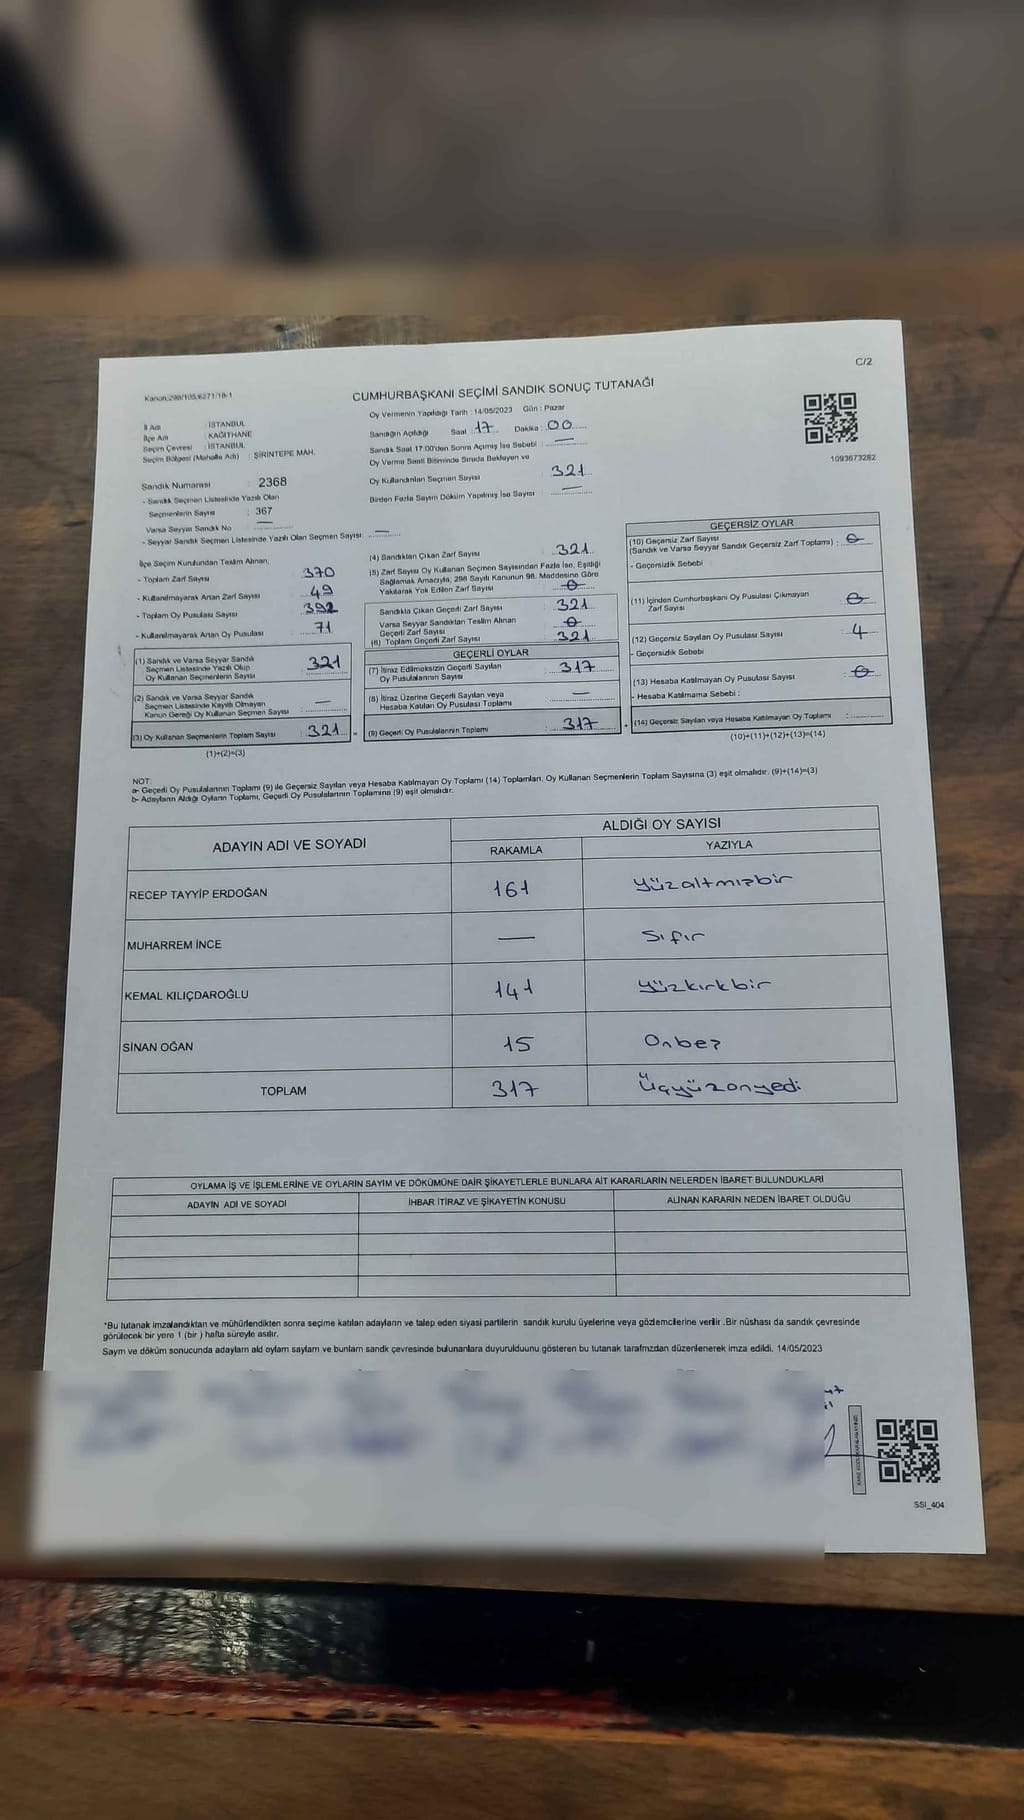 C/2
Kanun:298/105,6271/18-1
CUMHURBAŞKANI SEÇİMİ SANDIK SONUÇ TUTANAĞI
İl Adı : İSTANBUL
İlçe Adı : KAĞITHANE
Seçim Çevresi : İSTANBUL
Seçim Bölgesi (Mahalle Adı) : ŞİRİNTEPE MAH.
Sandık Numarası : 2368
- Sandık Seçmen Listesinde Yazılı Olan
Seçmenlerin Sayısı : 367
Varsa Seyyar Sandık No —
- Seyyar Sandık Seçmen Listesinde Yazılı Olan Seçmen Sayısı: —
Oy Vermenin Yapıldığı Tarih : 14/05/2023 Gün : Pazar
Sandığın Açıldığı Saat : 17 Dakika : 00
Sandık Saat 17:00'den Sonra Açılmış İse Sebebi : —
Oy Verme Saati Bitiminde Sırada Bekleyen ve
Oy Kullandırılan Seçmen Sayısı : 321
Birden Fazla Sayım Döküm Yapılmış İse Sayısı : —
1093673282
İlçe Seçim Kurulundan Teslim Alınan;
- Toplam Zarf Sayısı : 370
- Kullanılmayarak Artan Zarf Sayısı : 49
- Toplam Oy Pusulası Sayısı : 392
- Kullanılmayarak Artan Oy Pusulası : 71
(1) Sandık ve Varsa Seyyar Sandık
Seçmen Listesinde Yazılı Olup
Oy Kullanan Seçmenlerin Sayısı : 321
(2) Sandık ve Varsa Seyyar Sandık
Seçmen Listesinde Kayıtlı Olmayan
Kanun Gereği Oy Kullanan Seçmen Sayısı : —
(3) Oy Kullanan Seçmenlerin Toplam Sayısı : 321
(1)+(2)=(3)
(4) Sandıktan Çıkan Zarf Sayısı : 321
(5) Zarf Sayısı Oy Kullanan Seçmen Sayısından Fazla İse, Eşitliği
Sağlamak Amacıyla, 298 Sayılı Kanunun 98. Maddesine Göre
Yakılarak Yok Edilen Zarf Sayısı : 0
Sandıkta Çıkan Geçerli Zarf Sayısı : 321
Varsa Seyyar Sandıktan Teslim Alınan
Geçerli Zarf Sayısı : 0
(6) Toplam Geçerli Zarf Sayısı : 321
GEÇERLİ OYLAR
(7) İtiraz Edilmeksizin Geçerli Sayılan
Oy Pusulalarının Sayısı : 317
(8) İtiraz Üzerine Geçerli Sayılan veya
Hesaba Katılan Oy Pusulası Toplamı : —
(9) Geçerli Oy Pusulalarının Toplamı : 317
GEÇERSİZ OYLAR
(10) Geçersiz Zarf Sayısı
(Sandık ve Varsa Seyyar Sandık Geçersiz Zarf Toplamı) : 0
- Geçersizlik Sebebi
(11) İçinden Cumhurbaşkanı Oy Pusulası Çıkmayan
Zarf Sayısı : 0
(12) Geçersiz Sayılan Oy Pusulası Sayısı : 4
- Geçersizlik Sebebi
(13) Hesaba Katılmayan Oy Pusulası Sayısı : 0
- Hesaba Katılmama Sebebi :
(14) Geçersiz Sayılan veya Hesaba Katılmayan Oy Toplamı :
(10)+(11)+(12)+(13)=(14)
NOT:
a- Geçerli Oy Pusulalarının Toplamı (9) ile Geçersiz Sayılan veya Hesaba Katılmayan Oy Toplamı (14) Toplamları, Oy Kullanan Seçmenlerin Toplam Sayısına (3) eşit olmalıdır. (9)+(14)=(3)
b- Adayların Aldığı Oyların Toplamı, Geçerli Oy Pusulalarının Toplamına (9) eşit olmalıdır.
ADAYIN ADI VE SOYADI ALDIĞI OY SAYISI
RAKAMLA YAZIYLA
RECEP TAYYİP ERDOĞAN 161 Yüzaltmışbir
MUHARREM İNCE — Sıfır
KEMAL KILIÇDAROĞLU 141 Yüzkırkbir
SİNAN OĞAN 15 Onbeş
TOPLAM 317 Üçyüzonyedi
OYLAMA İŞ VE İŞLEMLERİNE VE OYLARIN SAYIM VE DÖKÜMÜNE DAİR ŞİKAYETLERLE BUNLARA AİT KARARLARIN NELERDEN İBARET BULUNDUKLARI
ADAYIN ADI VE SOYADI İHBAR İTİRAZ VE ŞİKAYETİN KONUSU ALINAN KARARIN NEDEN İBARET OLDUĞU
*Bu tutanak imzalandıktan ve mühürlendikten sonra seçime katılan adayların ve talep eden siyasi partilerin sandık kurulu üyelerine veya gözlemcilerine verilir .Bir nüshası da sandık çevresinde
görülecek bir yere 1 (bir ) hafta süreyle asılır.
Sayım ve döküm sonucunda adayların ald oyların sayıların ve bunların sandk çevresinde bulunanlara duyurulduunu gösteren bu tutanak tarafımzdan düzenlenerek imza edildi. 14/05/2023
SSI_404